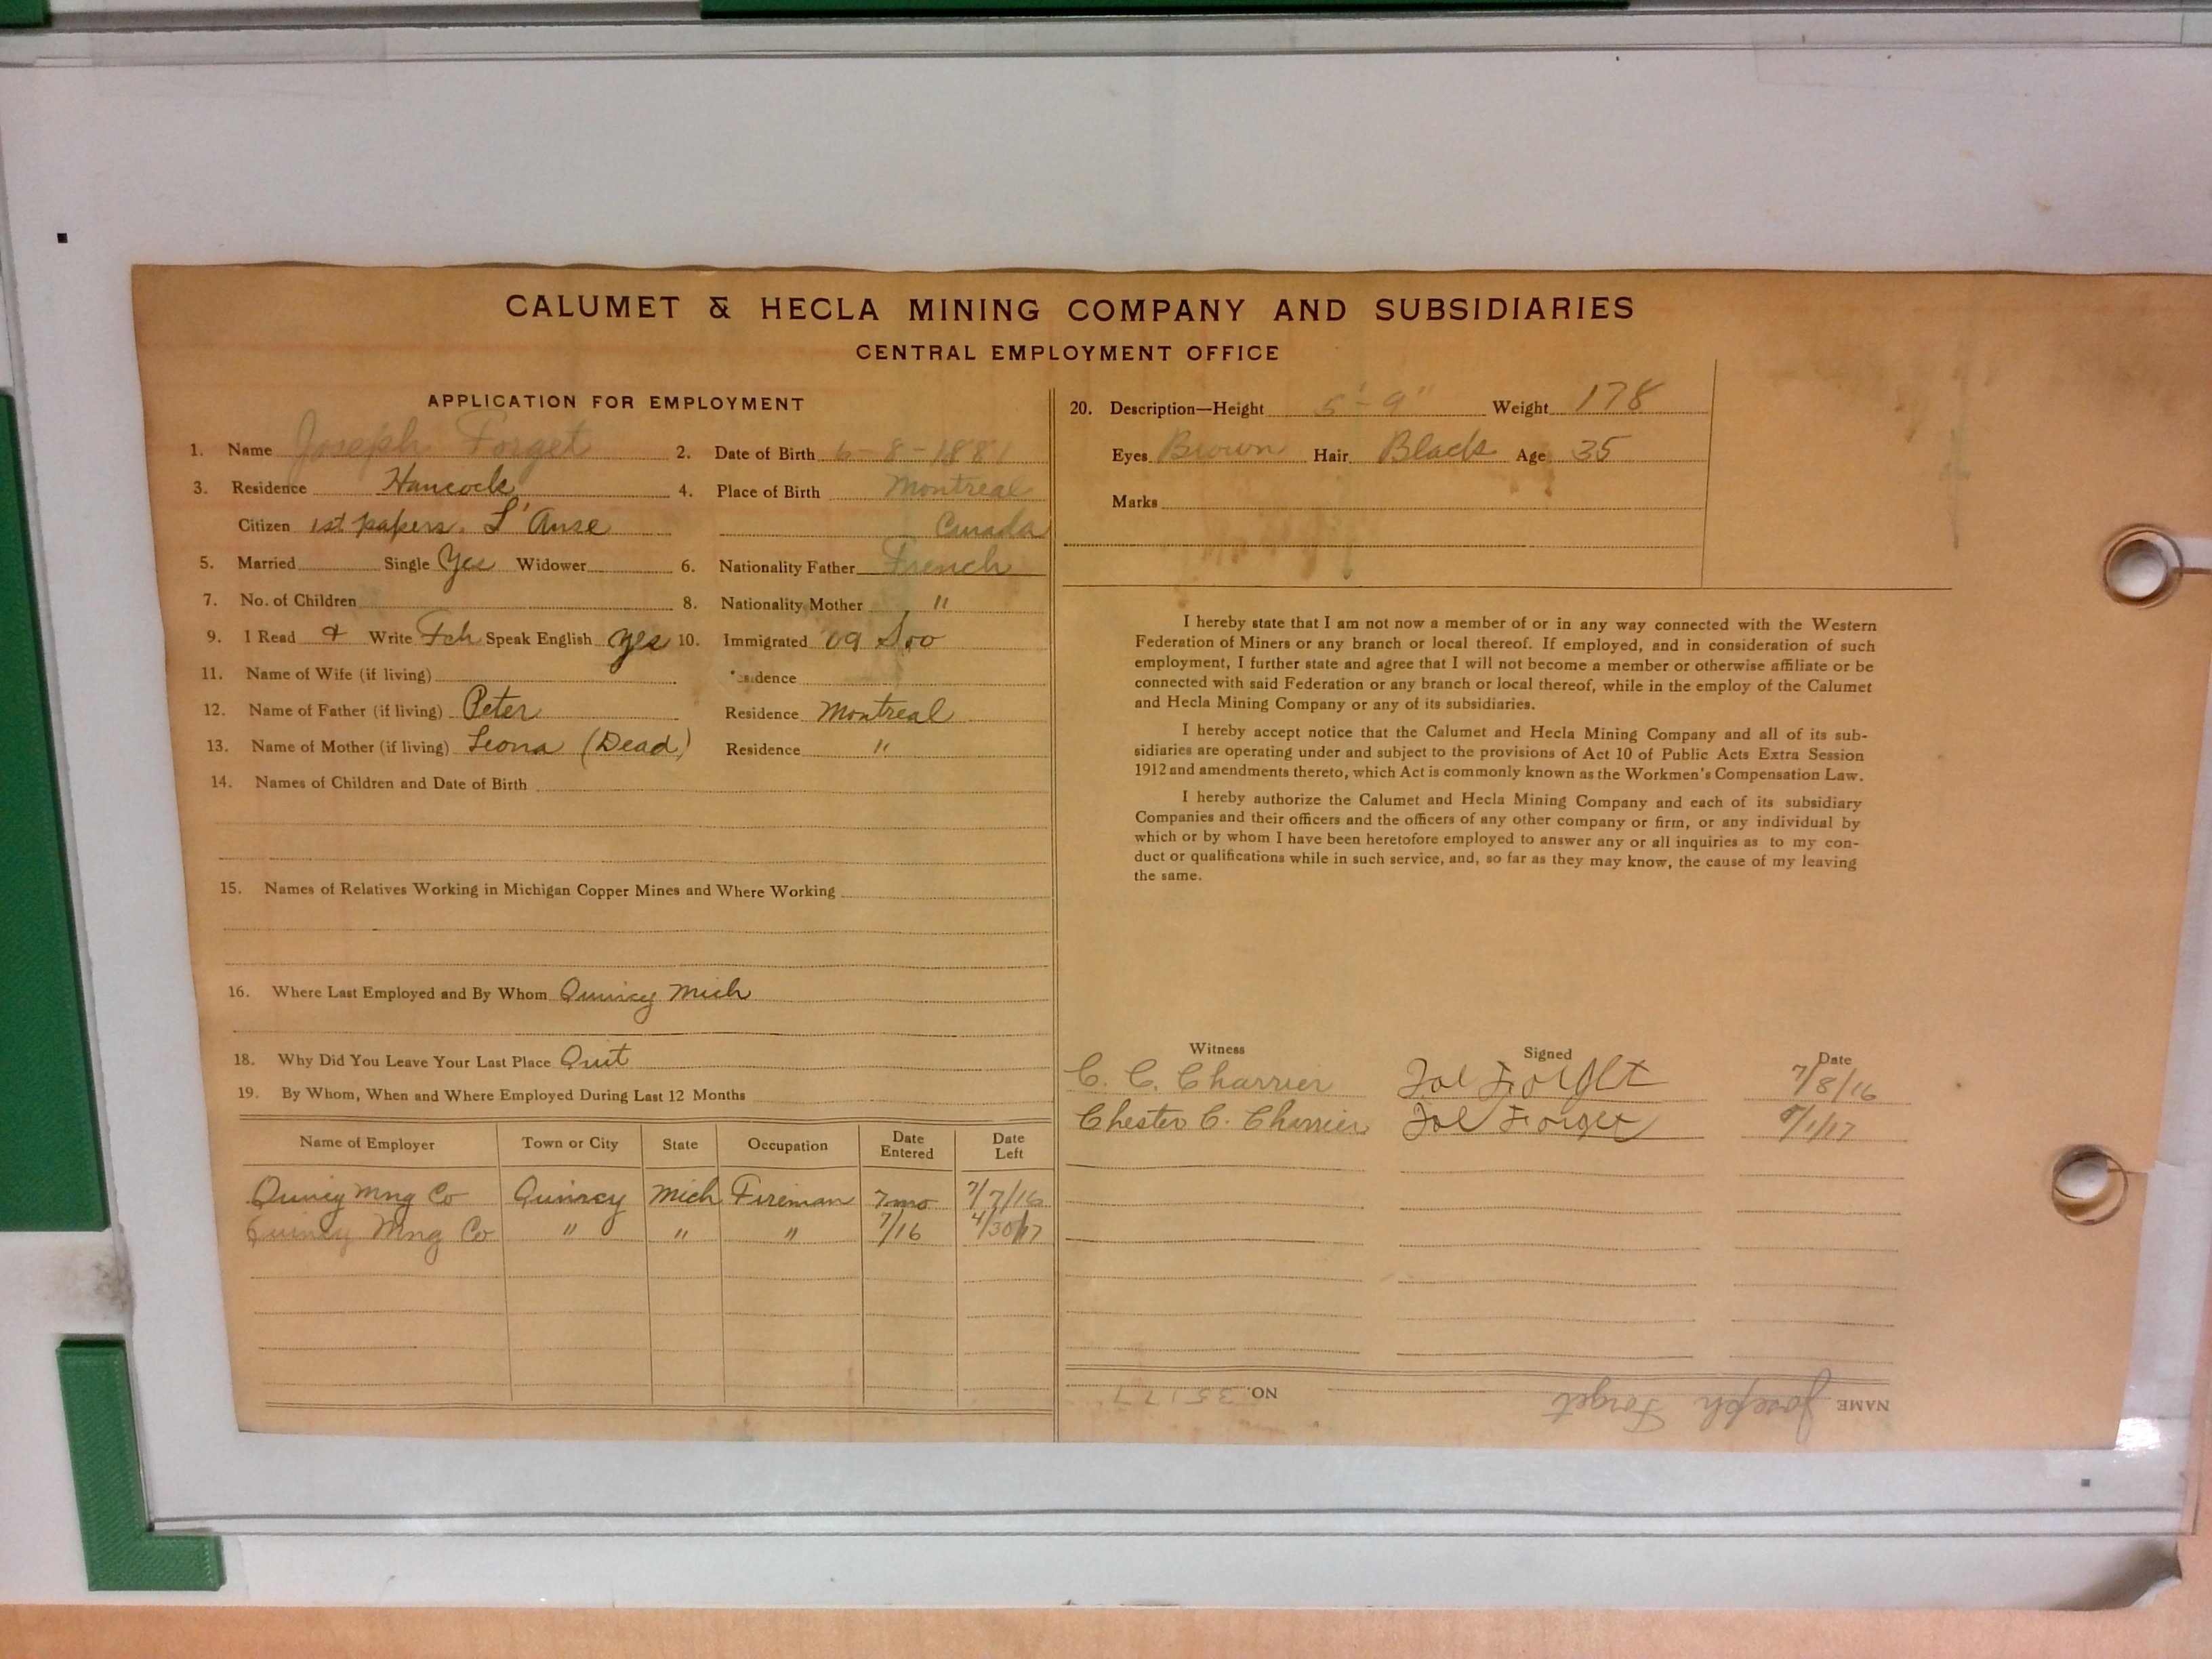 CALUMET & HECLA MINING COMPANY AND SUBSIDIARIES
CENTRAL EMPLOYMENT OFFICE
APPLICATION FOR EMPLOYMENT
1. Name Joseph Forget 2. Date of Birth 6-8-1881
3. Residence Hancock 4. Place of Birth Montreal
Citizen 1st papers. L'Anse Canada
5. Married Single Yes Widower 6. Nationality Father French
7. No. of Children 8. Nationality Mother "
9. I Read & Write Fch Speak English yes 10. Immigrated '09 Soo
11. Name of Wife (if living) Residence
12. Name of Father (if living) Peter Residence Montreal
13. Name of Mother (if living) Leona (Dead) Residence "
14. Names of Children and Date of Birth
15. Names of Relatives Working in Michigan Copper Mines and Where Working
16. Where Last Employed and By Whom Quincy Mich
18. Why Did You Leave Your Last Place Quit
19. By Whom, When and Where Employed During Last 12 Months
Name of Employer Town or City State Occupation Date Entered Date Left
Quincy Mng Co Quincy Mich Fireman 7mo 7/7/16
Quincy Mng Co " " " 7/16 4/30/17
20. Description—Height 5'-9" Weight 178
Eyes Brown Hair Black Age 35
Marks
I hereby state that I am not now a member of or in any way connected with the Western
Federation of Miners or any branch or local thereof. If employed, and in consideration of such
employment, I further state and agree that I will not become a member or otherwise affiliate or be
connected with said Federation or any branch or local thereof, while in the employ of the Calumet
and Hecla Mining Company or any of its subsidiaries.
I hereby accept notice that the Calumet and Hecla Mining Company and all of its sub-
sidiaries are operating under and subject to the provisions of Act 10 of Public Acts Extra Session
1912 and amendments thereto, which Act is commonly known as the Workmen's Compensation Law.
I hereby authorize the Calumet and Hecla Mining Company and each of its subsidiary
Companies and their officers and the officers of any other company or firm, or any individual by
which or by whom I have been heretofore employed to answer any or all inquiries as to my con-
duct or qualifications while in such service, and, so far as they may know, the cause of my leaving
the same.
Witness Signed Date
C. C. Charrier Joe Forget 7/8/16
Chester C. Charrier Joe Forget /1/17
NAME Joseph Forget NO. 35177